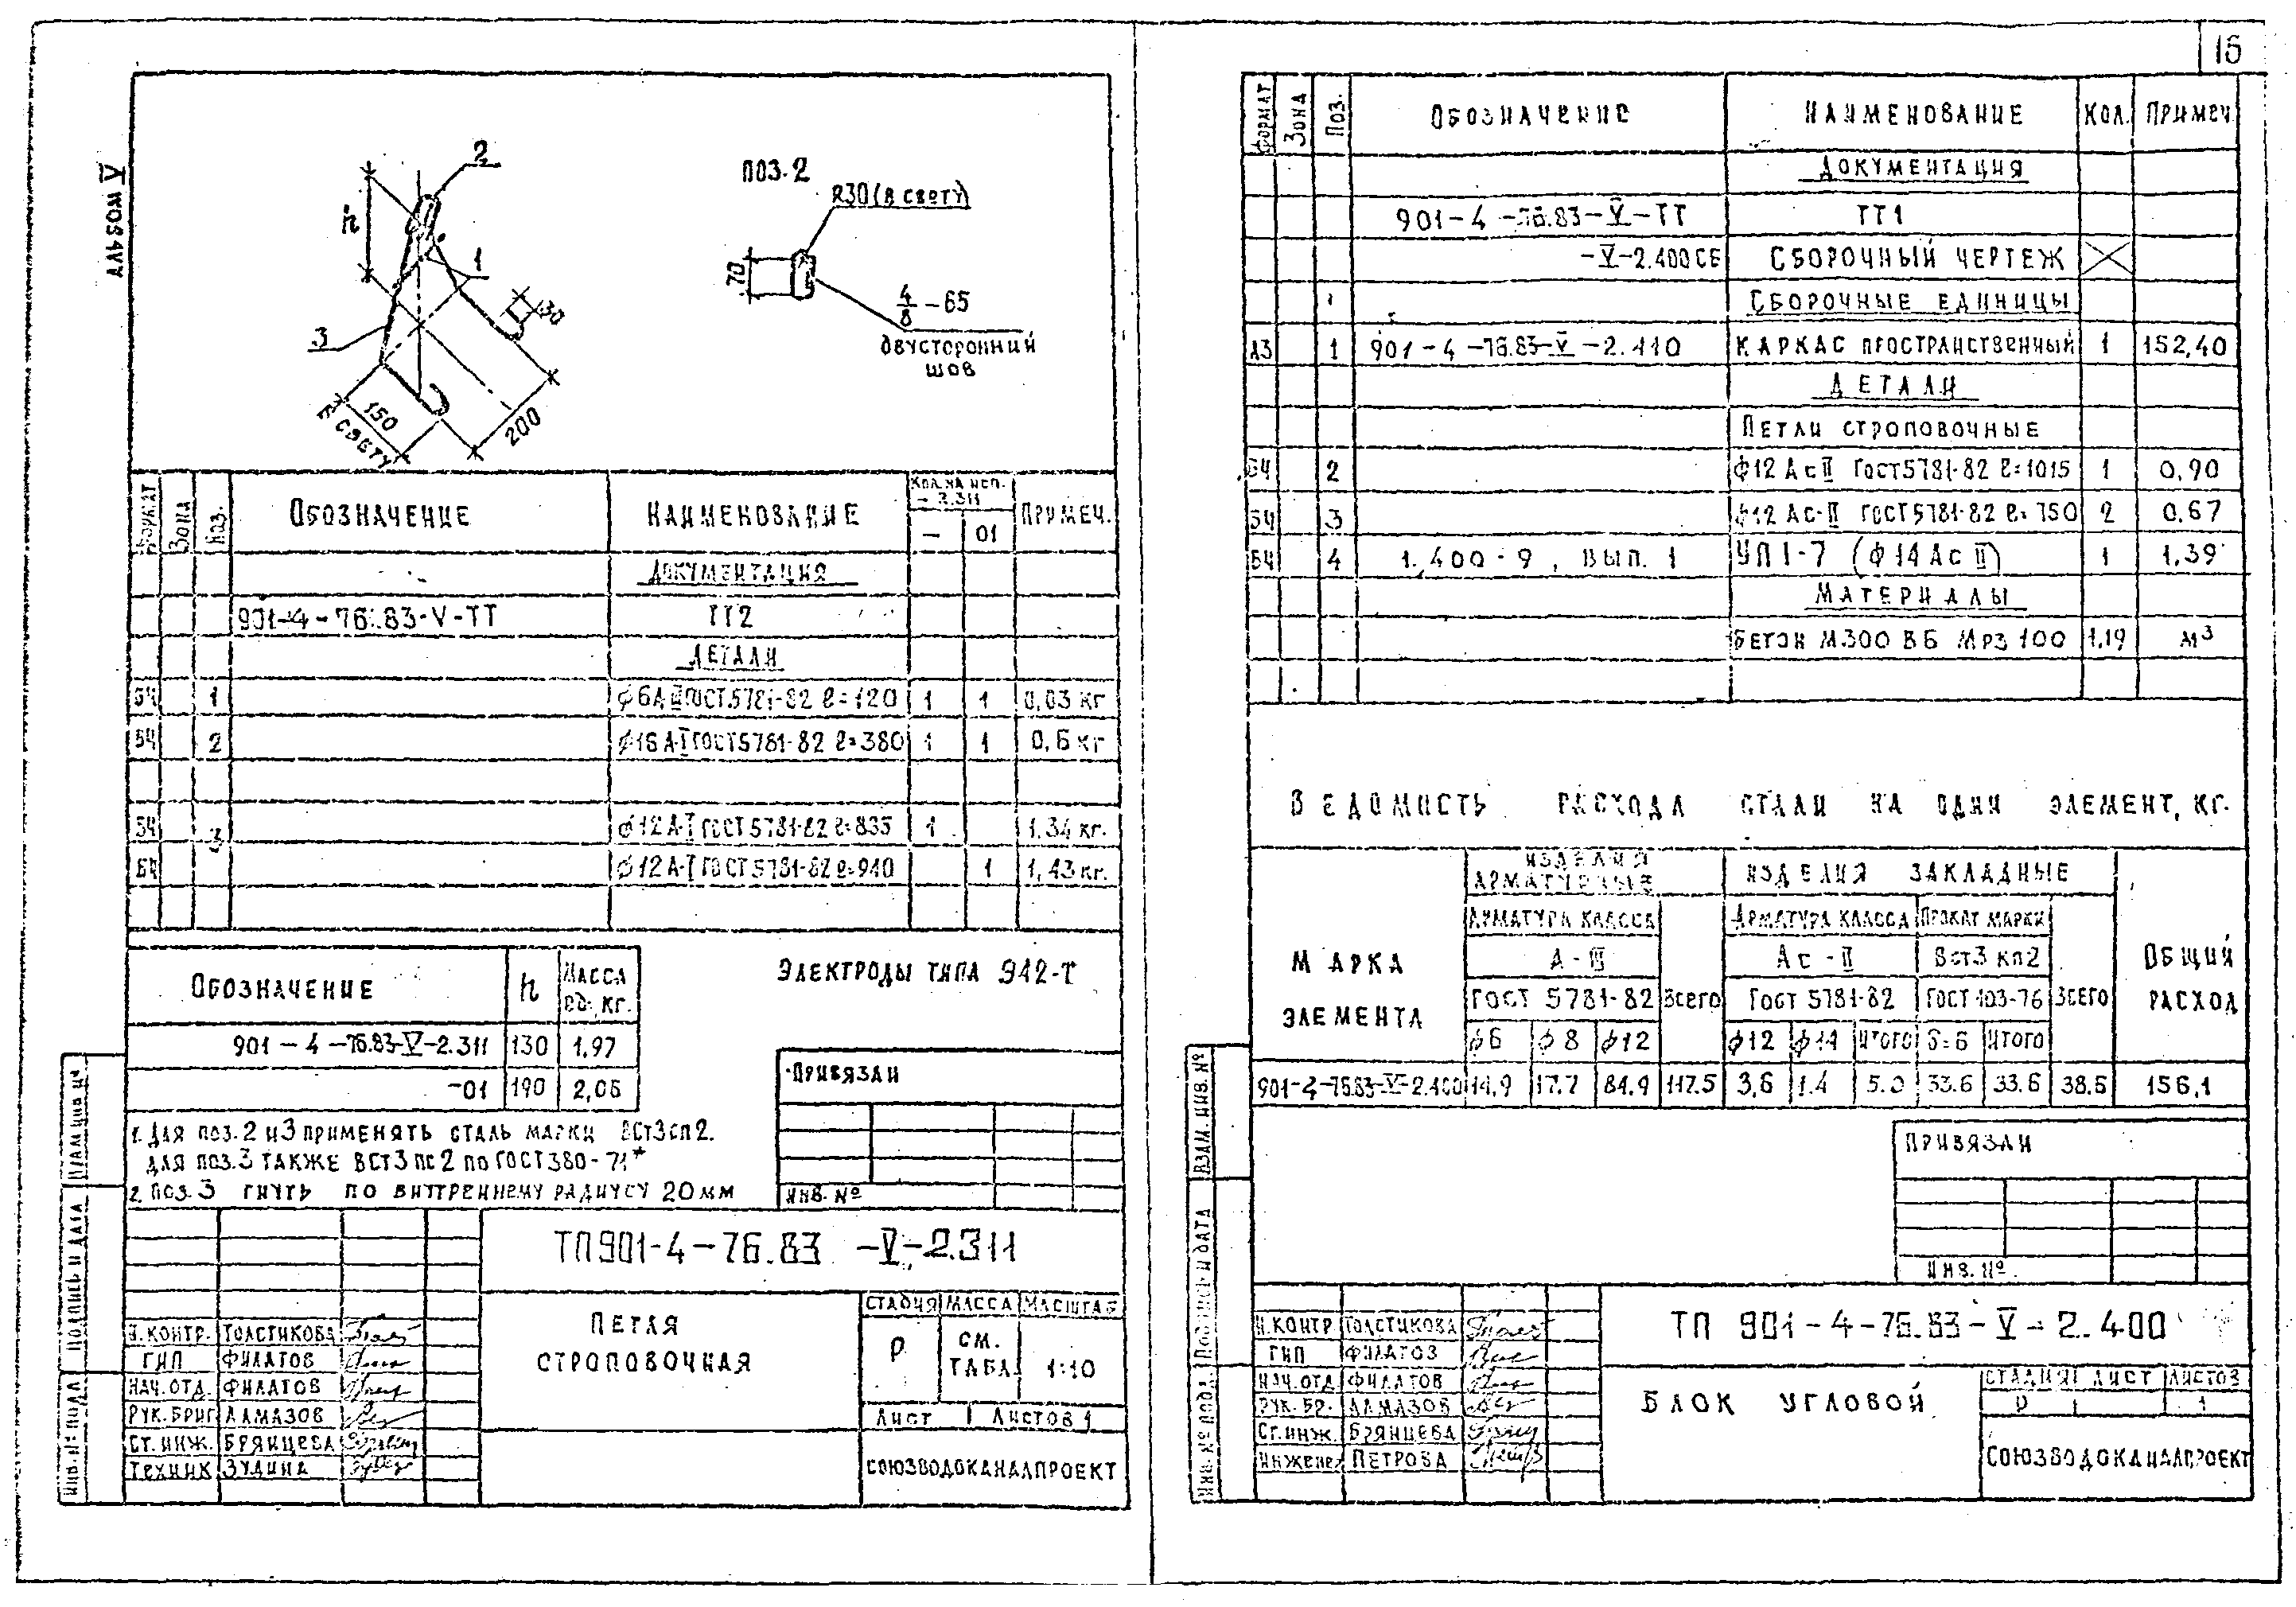 15
АЛЬБОМ V
2
h
1
3
30
150
В СВЕТУ
200
ПОЗ. 2
R30 (В СВЕТУ)
70
4/8 – 65
ДВУСТОРОННИЙ
ШОВ
ФОРМАТ ЗОНА ПОЗ. ОБОЗНАЧЕНИЕ НАИМЕНОВАНИЕ КОЛ. НА ИСП. – 2.311 ПРИМЕЧ.
– 01
ДОКУМЕНТАЦИЯ
901-4-76.83-V-ТТ ТТ2
ДЕТАЛИ
БЧ 1 ϕ6А ГОСТ 5781-82 ℓ=120 1 1 0,03 кг
БЧ 2 ϕ16 А-I ГОСТ 5781-82 ℓ=380 1 1 0,6 кг
БЧ 3 ϕ12 А-I ГОСТ 5781-82 ℓ=835 1 1,34 кг.
БЧ ϕ12 А-I ГОСТ 5781-82 ℓ=940 1 1,43 кг.
ОБОЗНАЧЕНИЕ h МАССА ЕД., КГ.
901-4-76.83-V-2.311 130 1,97
-01 190 2,06
ЭЛЕКТРОДЫ ТИПА Э42-Т
1. ДЛЯ ПОЗ. 2 И 3 ПРИМЕНЯТЬ СТАЛЬ МАРКИ ВСт3сп2.
ДЛЯ ПОЗ. 3 ТАКЖЕ ВСТ3ПС2 ПО ГОСТ 380-71*
2. ПОЗ. 3 ГНУТЬ ПО ВНУТРЕННЕМУ РАДИУСУ 20 ММ
ПРИВЯЗАН
ИНВ. №
ТП 901-4-76.83 -V-2.311
ПЕТЛЯ
СТРОПОВОЧНАЯ
СТАДИЯ МАССА МАСШТАБ
Р СМ. ТАБЛ. 1:10
ЛИСТ ЛИСТОВ 1
СОЮЗВОДОКАНАЛПРОЕКТ
Н.КОНТР. ТОЛСТИКОВА
ГИП ФИЛАТОВ
НАЧ.ОТД. ФИЛАТОВ
РУК.БРИГ АЛМАЗОВ
СТ.ИНЖ. БРЯНЦЕВА
ТЕХНИК ЗУДИНА
ПОДПИСЬ И ДАТА
ИНВ. № ПОДЛ
ФОРМАТ ЗОНА ПОЗ. ОБОЗНАЧЕНИЕ НАИМЕНОВАНИЕ КОЛ. ПРИМЕЧ.
ДОКУМЕНТАЦИЯ
901-4-76.83-V-ТТ ТТ1
-V-2.400СБ СБОРОЧНЫЙ ЧЕРТЕЖ
СБОРОЧНЫЕ ЕДИНИЦЫ
А3 1 901-4-76.83-V-2.110 КАРКАС ПРОСТРАНСТВЕННЫЙ 1 152,40
ДЕТАЛИ
ПЕТЛИ СТРОПОВОЧНЫЕ
БЧ 2 ϕ12 Ас II ГОСТ 5781-82 ℓ=1015 1 0,90
БЧ 3 ϕ12 Ас-II ГОСТ 5781-82 ℓ=750 2 0,67
БЧ 4 1.400-9, ВЫП. 1 УП1-7 (ϕ14 Ас II) 1 1,39
МАТЕРИАЛЫ
БЕТОН М300 В6 Мрз 100 1,19 м³
ВЕДОМИСТЬ РАСХОДА СТАЛИ НА ОДИН ЭЛЕМЕНТ, КГ.
МАРКА ЭЛЕМЕНТА ИЗДЕЛИЯ АРМАТУРНЫЕ ИЗДЕЛИЯ ЗАКЛАДНЫЕ ОБЩИЙ РАСХОД
АРМАТУРА КЛАССА АРМАТУРА КЛАССА ПРОКАТ МАРКИ
А-III Ас-II Вст3 кп2
ГОСТ 5781-82 ВСЕГО ГОСТ 5781-82 ГОСТ 103-76 ВСЕГО
ϕ6 ϕ8 ϕ12 ϕ12 ϕ14 ИТОГО δ=6 ИТОГО
901-4-76.83-V-2.400 14,9 17.7 84.9 117.5 3,6 1.4 5.0 33.6 33.6 38.6 156,1
ПРИВЯЗАН
ИНВ. №
ТП 901-4-76.83-V-2.400
БЛОК УГЛОВОЙ
СТАДИЯ ЛИСТ ЛИСТОВ
Р 1
СОЮЗВОДОКАНАЛПРОЕКТ
Н.КОНТР ТОЛСТИКОВА
ГИП ФИЛАТОВ
НАЧ.ОТД ФИЛАТОВ
РУК.БР. АЛМАЗОВ
СТ.ИНЖ. БРЯНЦЕВА
ИНЖЕНЕР ПЕТРОВА
ВЗАМ. ИНВ. №
ПОДПИСЬ И ДАТА
ИНВ. № ПОДЛ